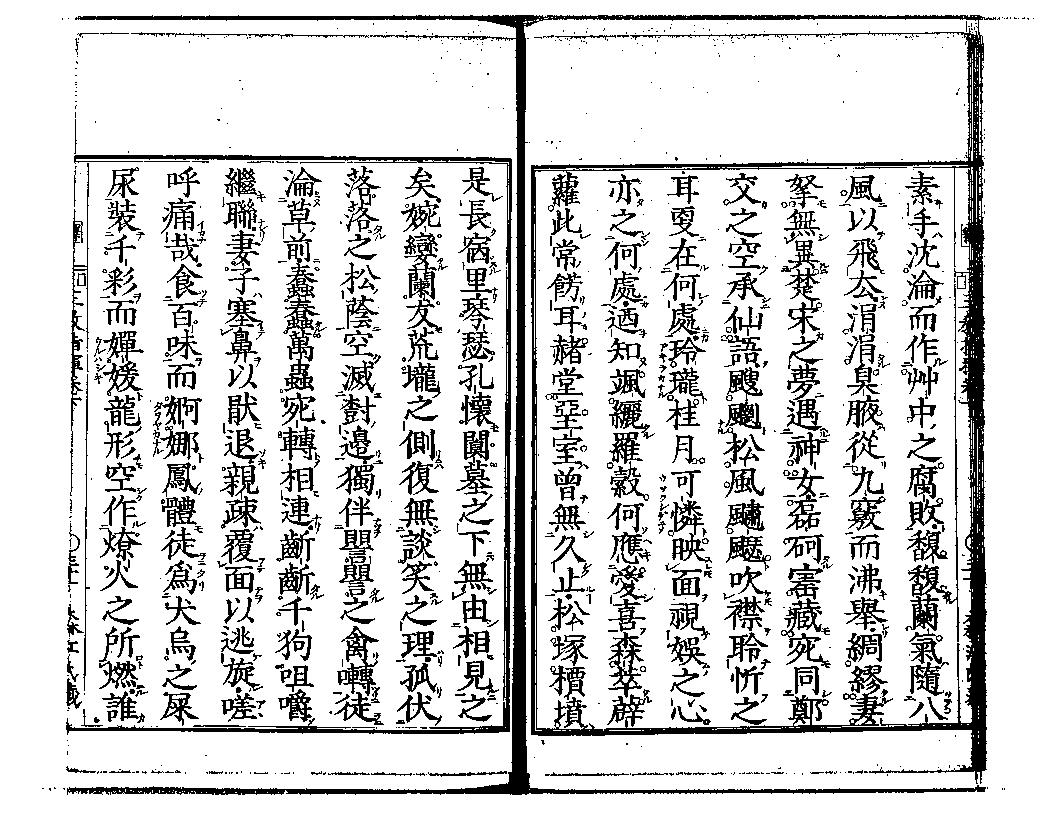 素手沈淪而作艸中之腐敗馥馥蘭氣隨八
風以飛去涓涓臭腋從九竅而沸舉綢繆妻
孥無異楚宋之夢遇神女磊砢寚藏宛同鄭
交之空承仙語颼飀松風飀䬙吹襟聆忻之
耳亙在何處玲瓏桂月可憐映面視娛之心
亦之何處迺知颯纚羅縠何應愛喜森萃薜
蘿此常餝耳赭堂堊室曾無久止松塚檟墳
是長宿里琴瑟孔懷闃墓之下無由相見之
矣婉孌蘭友荒壠之側復無談笑之理孤伏
落落之松蔭空滅對邉獨伴嚶嚶之禽囀徒
淪草前蠢蠢萬蟲宛轉相連齗齗千狗咀嚼
繼聯妻子塞鼻以猒退親疎覆面以逃旋嗟
呼痛哉食百味而婀娜鳳體徒爲犬烏之屎
尿裝千彩而嬋媛龍形空作燎火之所燃誰